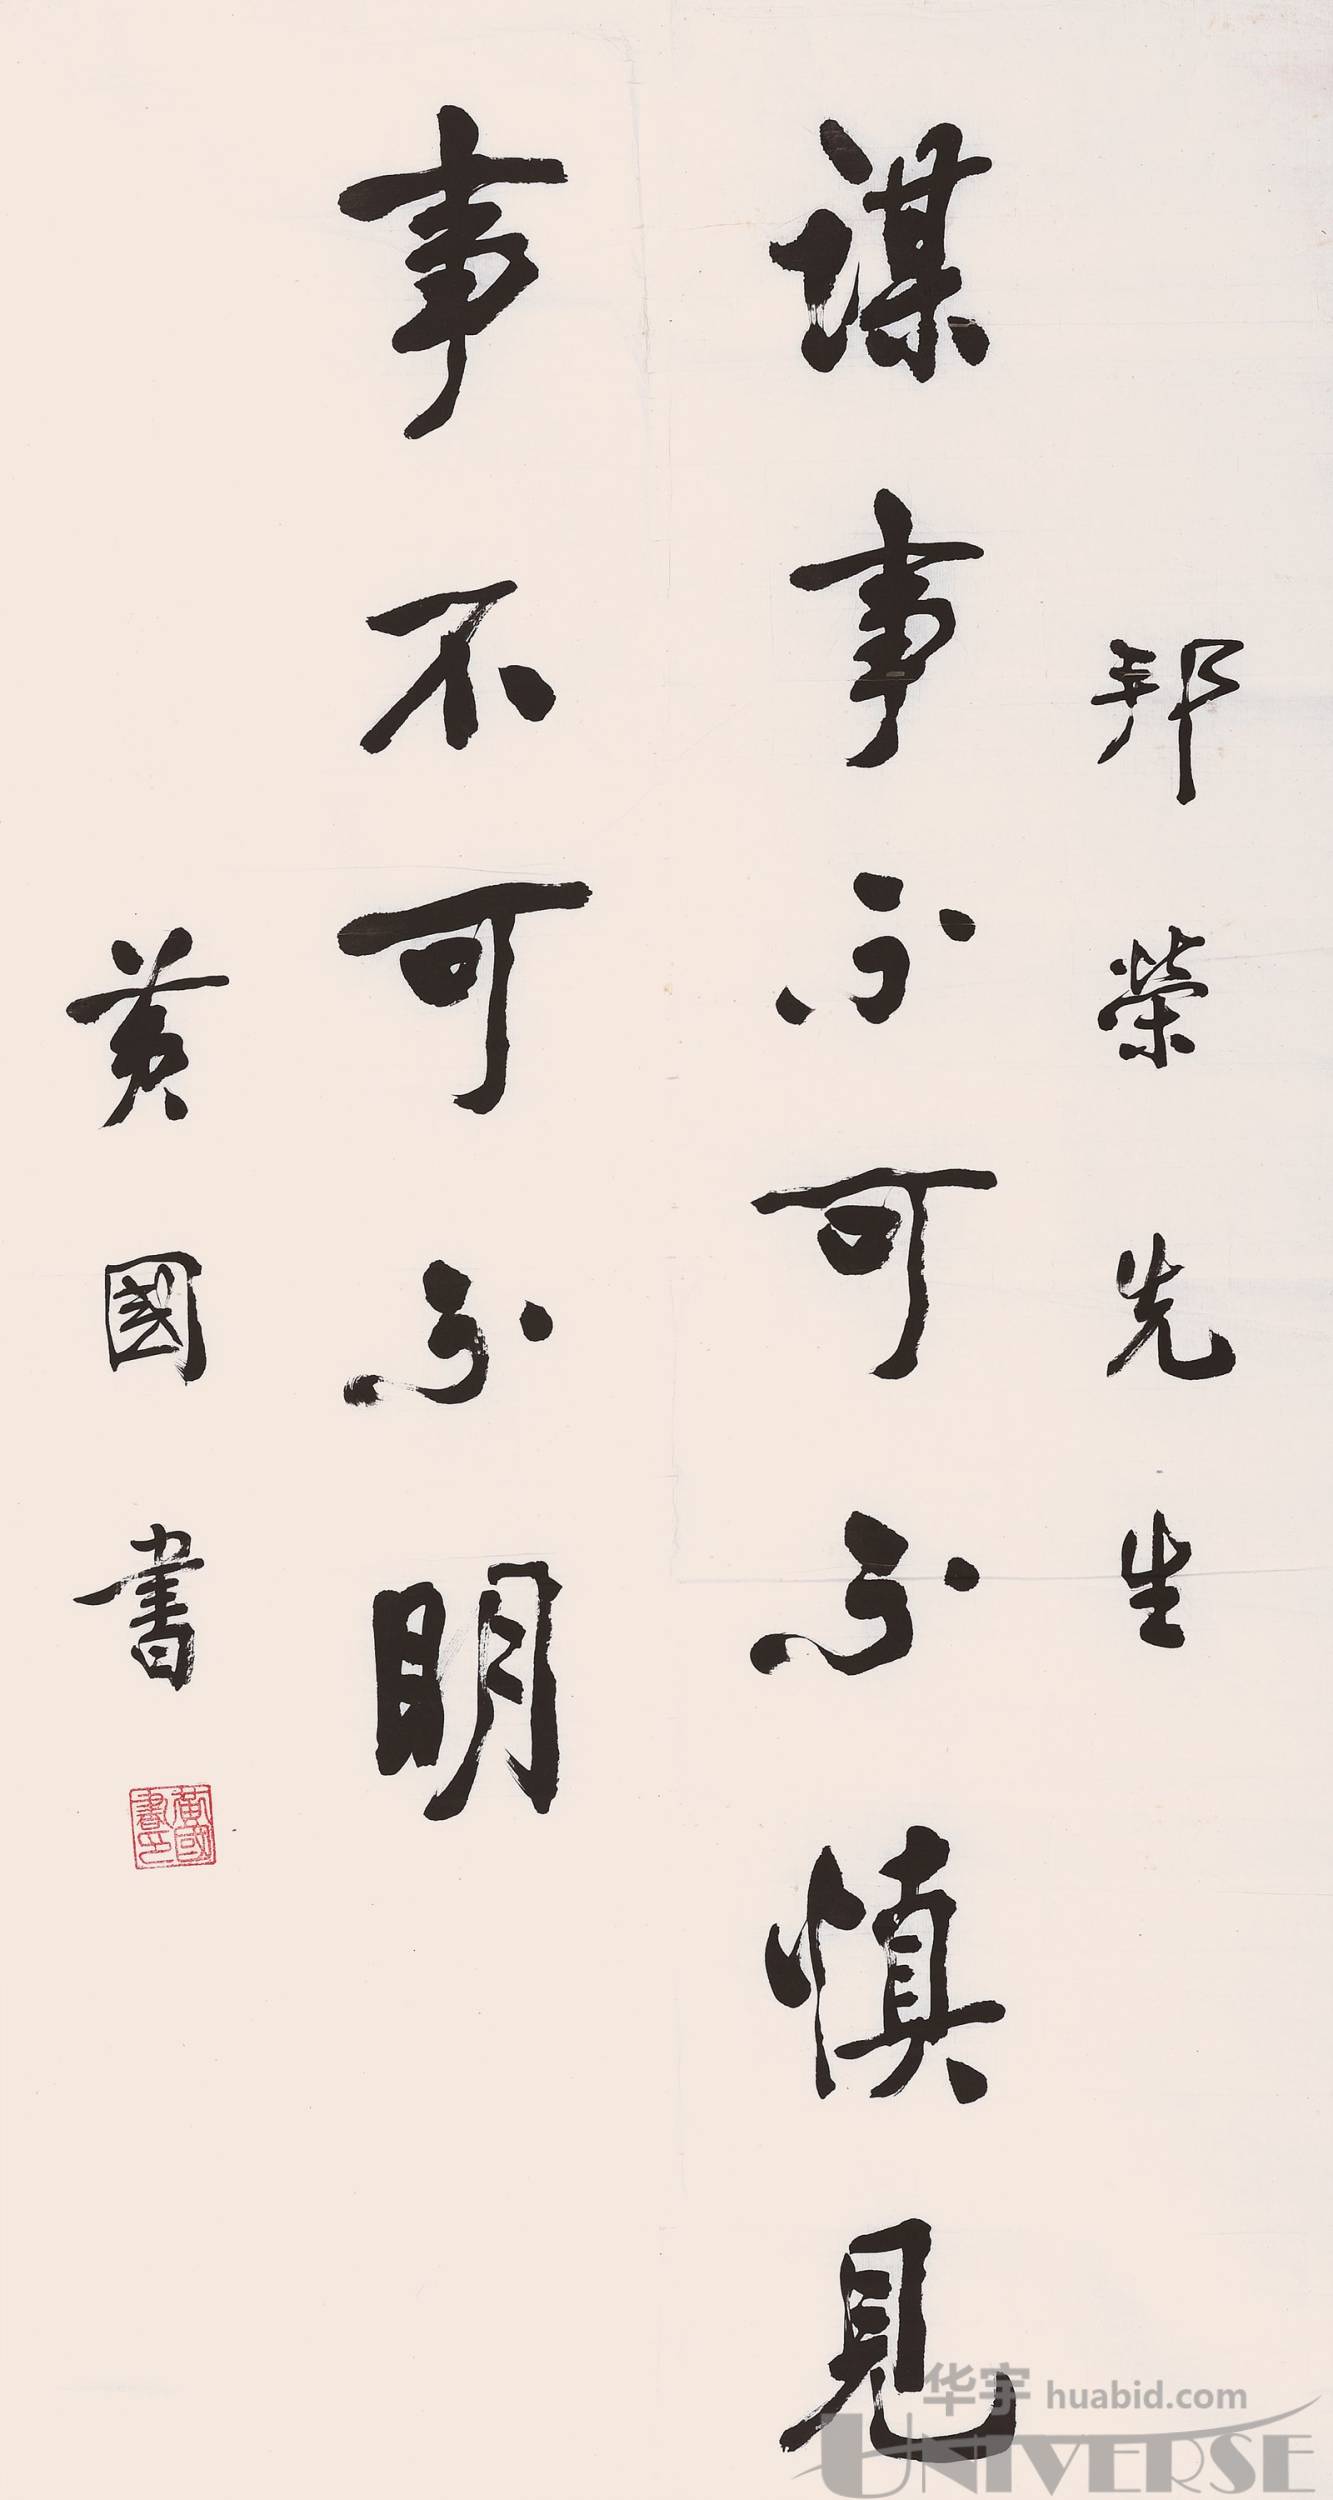 邦榮先生
謀事不可不慎見
事不可不明
黃國書
黃國書印
华宇 huabid.com
UNIVERSE